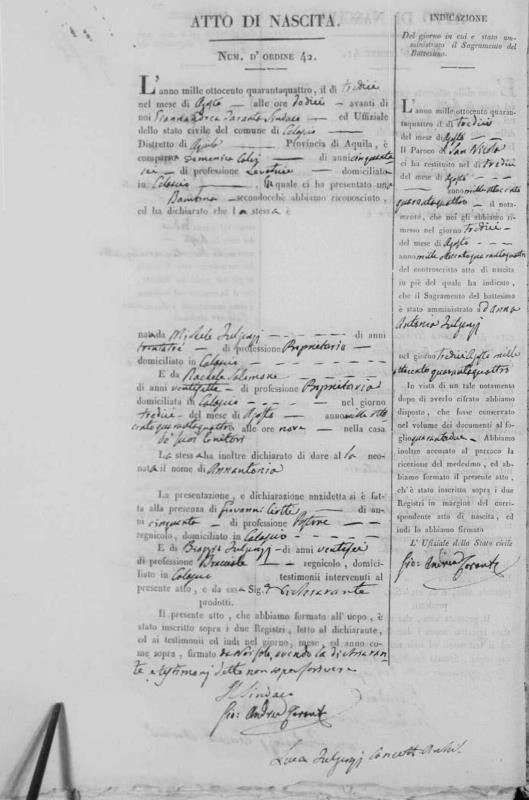 ATTO DI NASCITA.
NUM. D' ORDINE 42.
L'anno mille ottocento quarantaquattro, il dì tredici
nel mese di Agosto alle ore dodici avanti di
noi Sindaco ed Uffiziale
dello stato civile del comune di Calascio
Distretto di Aquila Provincia di Aquila, è
comparsa Domenica di anni cinquanta
sei di professione Levatrice domiciliata
in Calascio la quale ci ha presentato una
Bambina secondochè abbiamo riconosciuto,
ed ha dichiarato che la stessa è
nata da Michele Fulgenzj di anni
trentatre di professione Proprietario
domiciliato in Calascio
E da Rachele Salomone
di anni ventisette di professione Proprietaria
domiciliata in Calascio nel giorno
tredici del mese di Agosto anno mille otto
cento quarantaquattro alle ore nove nella casa
de' suoi Genitori
La stessa ha inoltre dichiarato di dare al la neo-
nata il nome di Annantonia
La presentazione, e dichiarazione anzidetta si è fat-
ta alla presenza di Giovanni Ciotti di an-
ni cinquanta di professione Pastore
regnicolo, domiciliato in Calascio
E di Biaggio Fulgenzj di anni ventisei
di professione Bracciale regnicolo, domici-
liato in Calascio testimonii intervenuti al
presente atto, e da essa Sig.ra Dichiarante
prodotti.
Il presente atto, che abbiamo formato all'uopo, è
stato inscritto sopra i due Registri, letto al dichiarante,
ed ai testimonii ed indi nel giorno, mese, ed anno co-
me sopra, firmato da Noi solo, avendo la dichiaran
te e testimonj detto non saper scrivere
Il Sindaco
Gio: Andrea Taranta
Luca Fulgenzj
INDICAZIONE
Del giorno in cui è stato am-
ministrato il Sagramento del
Battesimo.
L'anno mille ottocento quaran-
taquattro il dì tredici
del mese di Agosto
Il Paroco di San Nicola
ci ha restituito nel dì tredici
del mese di Agosto
anno mille ottocento
quarantaquattro il nota-
mento, che noi gli abbiamo ri-
messo nel giorno tredici
del mese di Agosto
anno mille ottocento quarantaquattro
del controscritto atto di nascita
in piè del quale ha indicato,
che il Sagramento del battesimo
è stato amministrato ad Anna
Antonia Fulgenzj
nel giorno tredici Agosto mille
ottocento quarantaquattro
In vista di un tale notamento
dopo di averlo cifrato abbiamo
disposto, che fosse conservato
nel volume dei documenti al fo-
glio quarantadue Abbiamo
inoltre accusato al parroco la
ricezione del medesimo, ed ab-
biamo formato il presente atto,
ch'è stato inscritto sopra i due
Registri in margine del corri-
spondente atto di nascita, ed
indi lo abbiamo firmato
L' Ufiziale dello Stato civile
Gio: Andrea Taranta